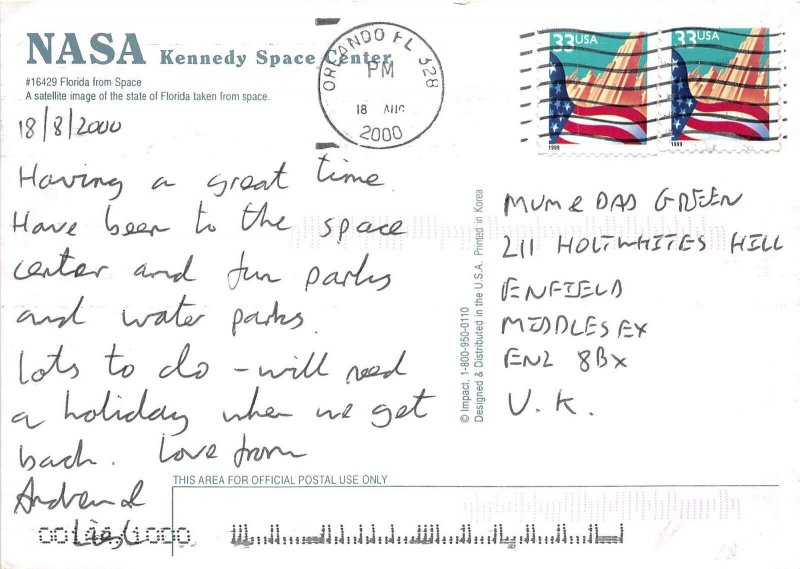 NASA Kennedy Space Center
#16429 Florida from Space
A satellite image of the state of Florida taken from space.
ORLANDO FL 328
PM
18 AUG
2000
33USA
1999
33USA
1999
18/8/2000
Having a great time
Have been to the space
center and fun parks
and water parks.
Lots to do - will need
a holiday when we get
back. Love from
Andrew &
MUM & DAD GREEN
211 HOLTWHITES HILL
ENFIELD
MIDDLESEX
EN2 8BX
U.K.
© Impact, 1-800-950-0110
Designed & Distributed in the U.S.A. Printed in Korea
THIS AREA FOR OFFICIAL POSTAL USE ONLY